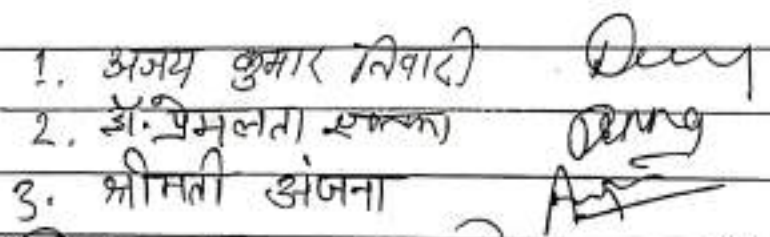 1. अजय कुमार तिवारी
2. डॉ. प्रेमलता एक्का
3. श्रीमती अंजना